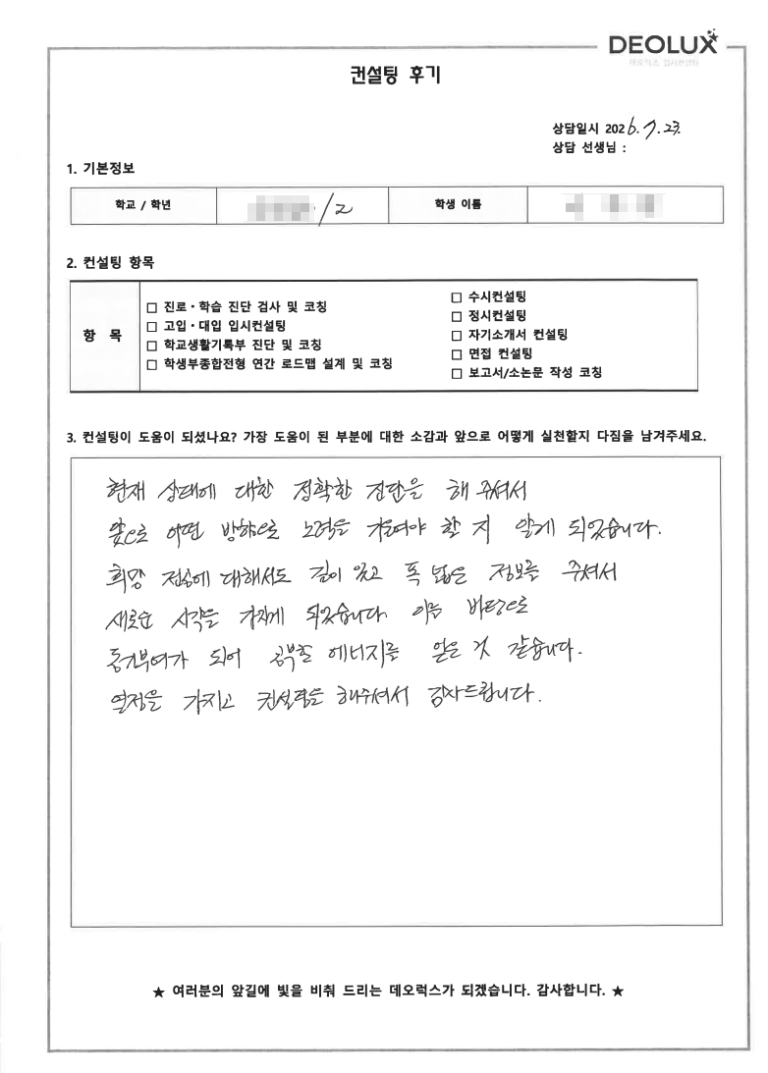 DEOLUX
데오럭스 입시컨설팅
컨설팅 후기
상담일시 2026. 7. 23.
상담 선생님 :
1. 기본정보
학교 / 학년 /2 학생 이름
2. 컨설팅 항목
항 목
□ 진로·학습 진단 검사 및 코칭
□ 고입·대입 입시컨설팅
□ 학교생활기록부 진단 및 코칭
□ 학생부종합전형 연간 로드맵 설계 및 코칭
□ 수시컨설팅
□ 정시컨설팅
□ 자기소개서 컨설팅
□ 면접 컨설팅
□ 보고서/소논문 작성 코칭
3. 컨설팅이 도움이 되셨나요? 가장 도움이 된 부분에 대한 소감과 앞으로 어떻게 실천할지 다짐을 남겨주세요.
현재 상태에 대한 정확한 진단을 해 주셔서
앞으로 어떤 방향으로 노력을 기울여야 할 지 알게 되었습니다.
희망 전공에 대해서도 깊이 있고 폭 넓은 정보를 주셔서
새로운 시각을 가지게 되었습니다. 이를 바탕으로
동기부여가 되어 공부할 에너지를 얻은 것 같습니다.
열정을 가지고 컨설팅을 해주셔서 감사드립니다.
★ 여러분의 앞길에 빛을 비춰 드리는 데오럭스가 되겠습니다. 감사합니다. ★